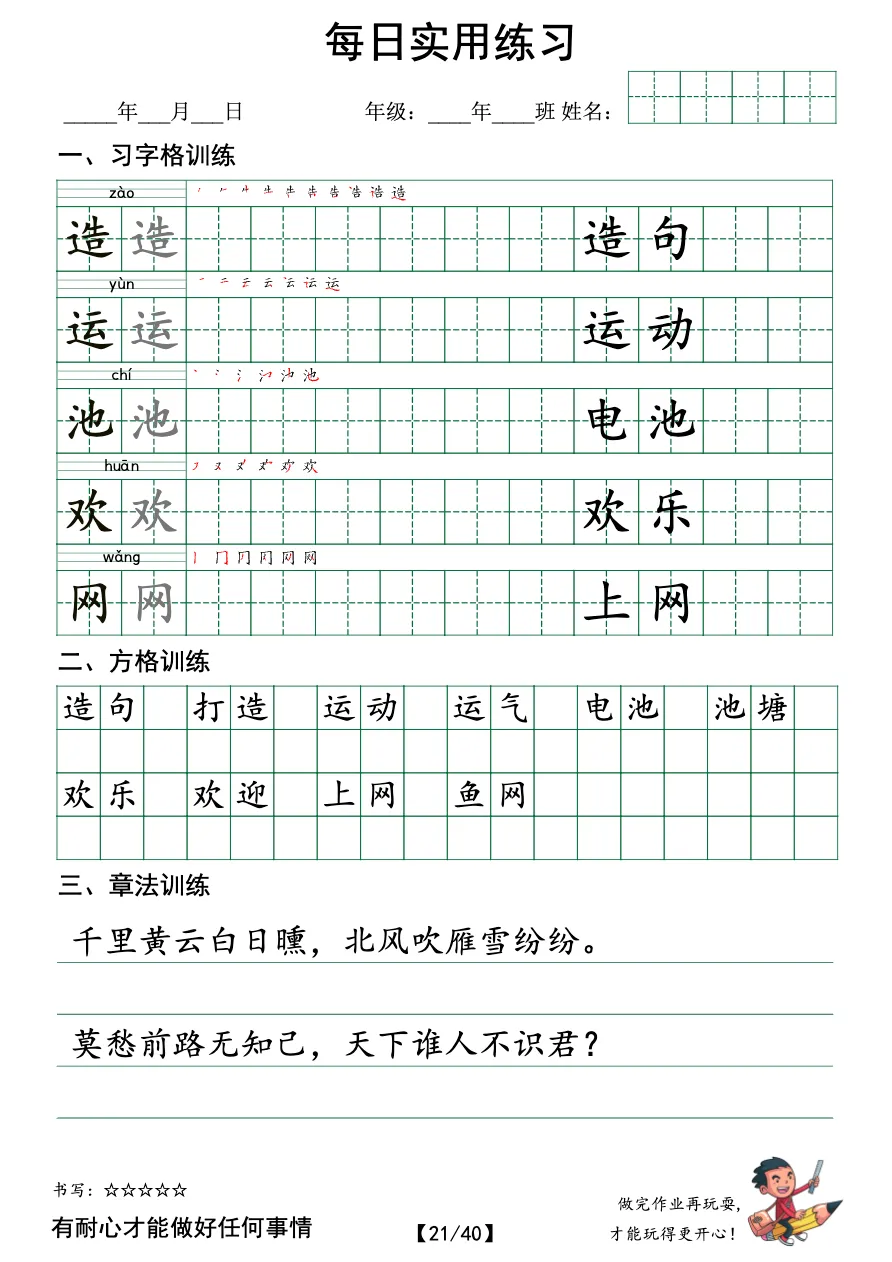 每日实用练习
_____年___月___日 年级：____年____班 姓名：
一、习字格训练
zào
造 造 造 句
yùn
运 运 运 动
chí
池 池 电 池
huān
欢 欢 欢 乐
wǎng
网 网 上 网
二、方格训练
造 句 打 造 运 动 运 气 电 池 池 塘
欢 乐 欢 迎 上 网 鱼 网
三、章法训练
千里黄云白日曛，北风吹雁雪纷纷。
莫愁前路无知己，天下谁人不识君？
书写：☆☆☆☆☆
有耐心才能做好任何事情
【21/40】
做完作业再玩耍，
才能玩得更开心！